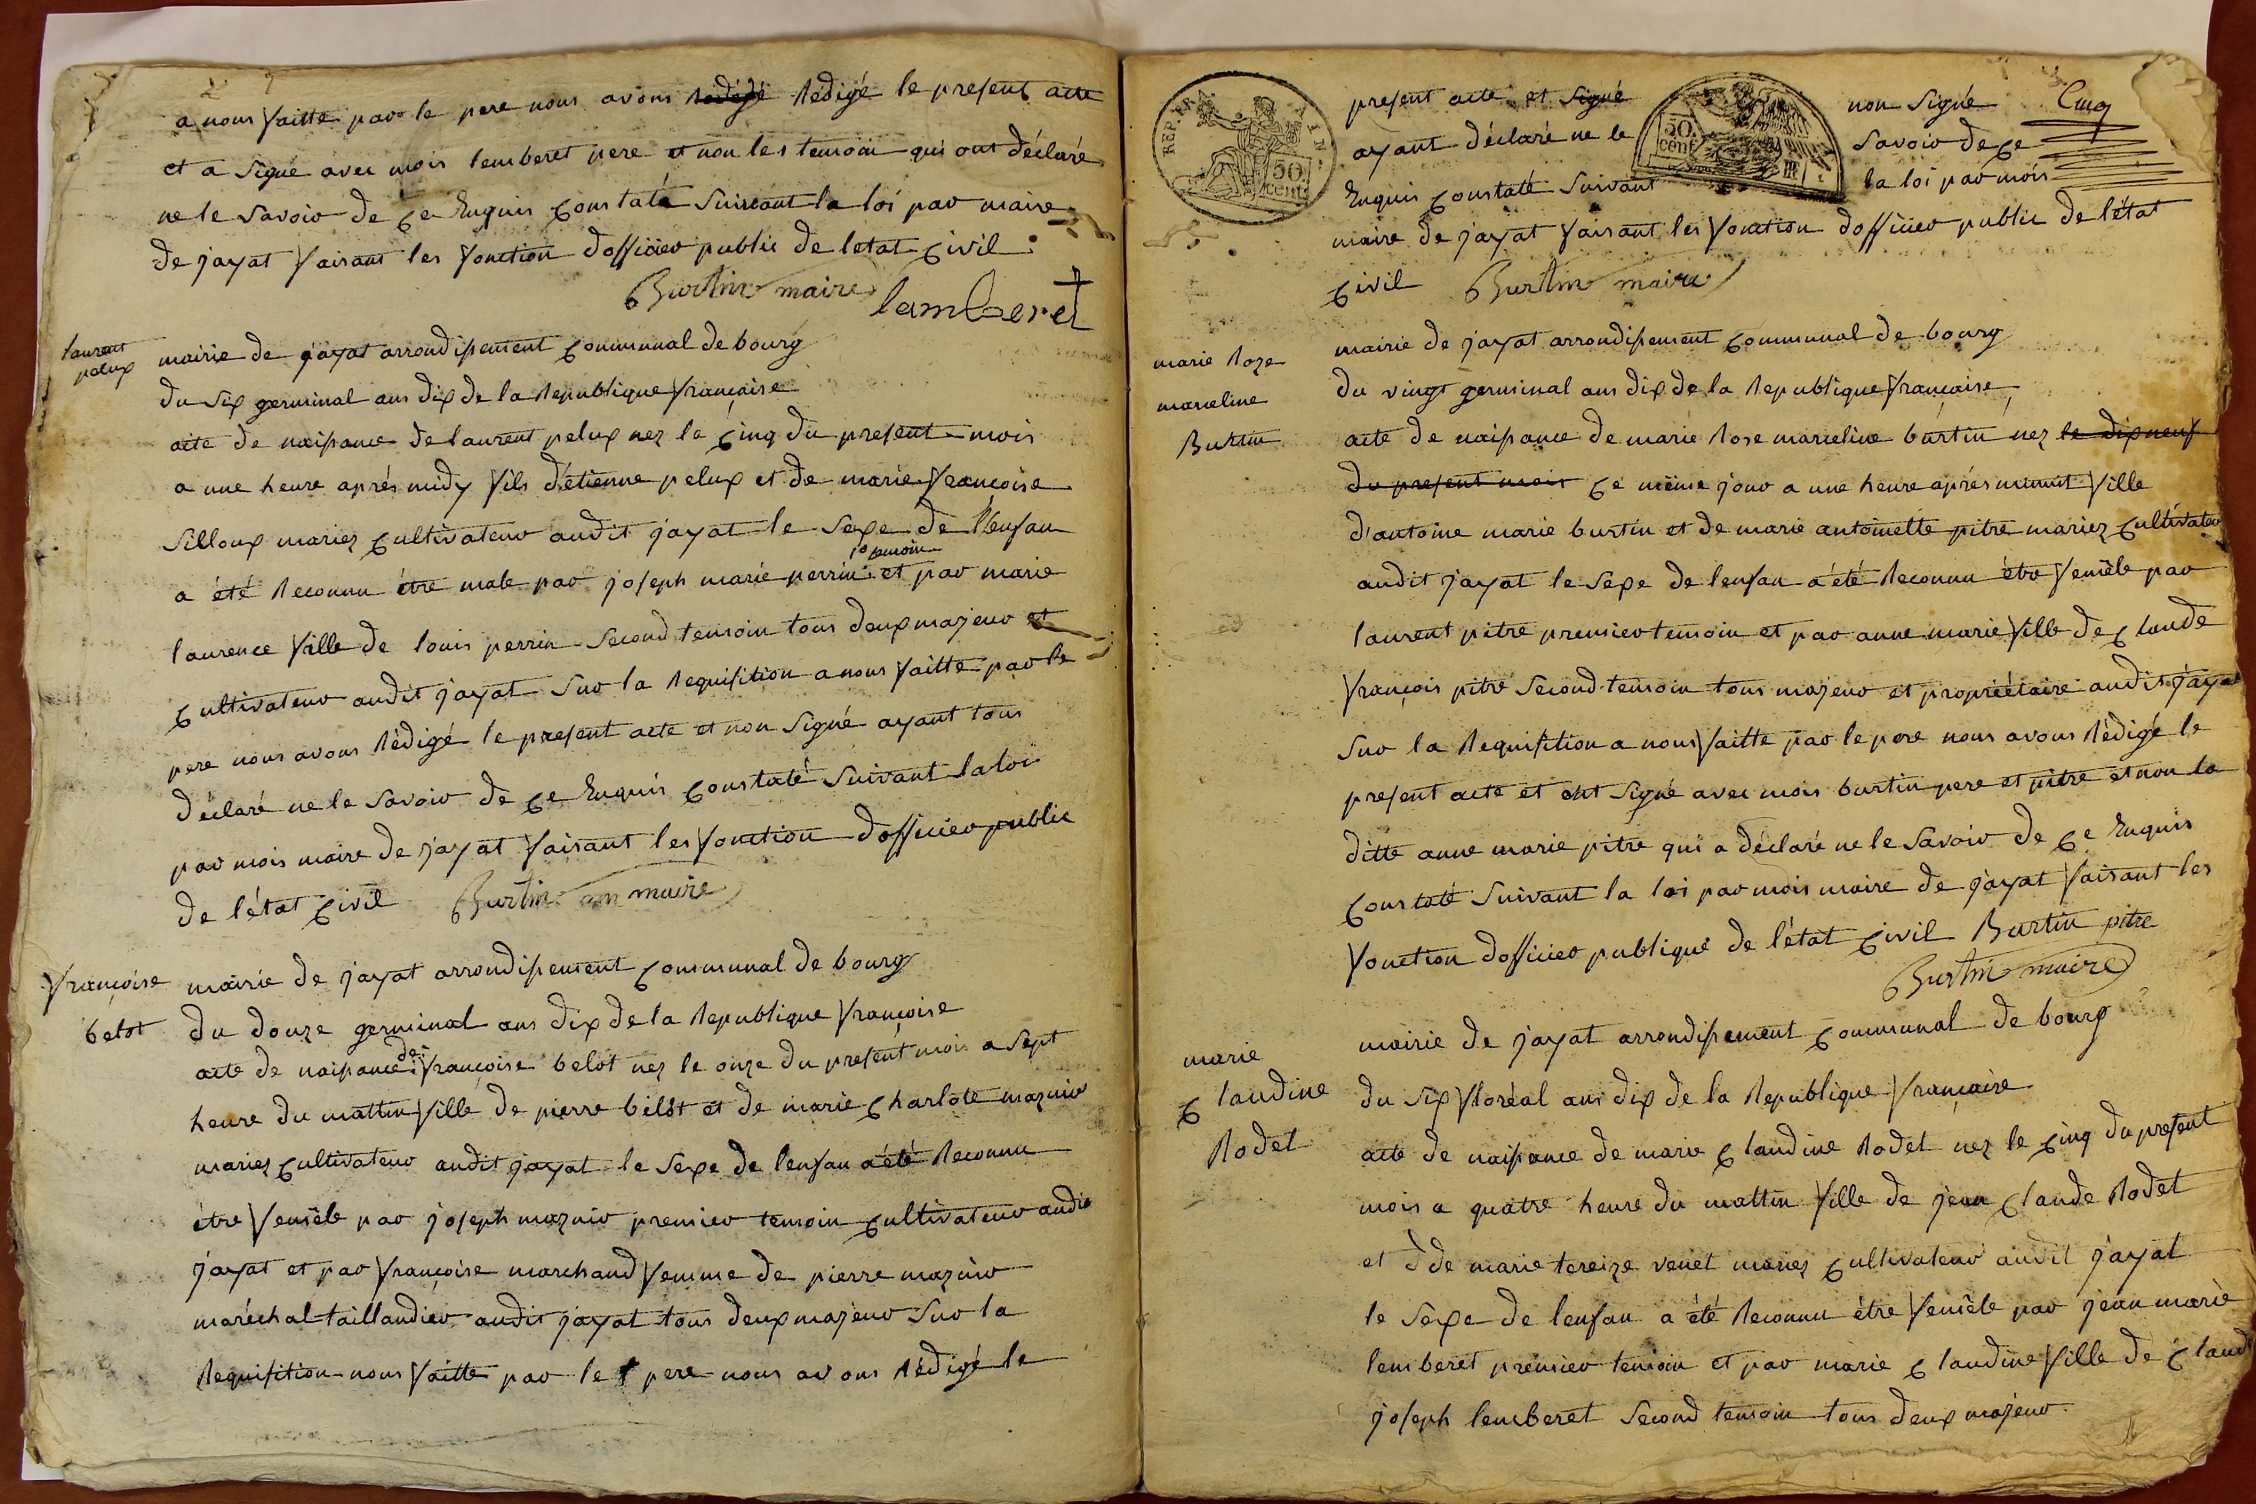 a nous faitte par le pere nous avons redégé rédigé le present acte
et a signé avec mois lemberet pere et non les temoin qui ont déclaré
ne le savoir de ce enquis constaté suivant la loi par maire
de jayat faisant les fonction d'officier public de letat civil
Burtin maire lamberet
laurent
pelux
mairie de jayat arrondissement communal de bourg
du six germinal ans dix de la republique française
acte de naissance de laurent pelux nez le cinq du present mois
a une heure aprés midy fils d'étienne pelux et de marie françoise
silloux mariez cultivateur audit jayat le sexe de l'enfan
a été reconnu étre male par joseph marie perrin 1er temoin et par marie
laurence fille de louis perrin second temoin tous deux majeur et
cultivateur audit jayat sur la requisition a nous faitte par le
pere nous avons rédigé le present acte et non signé ayant tous
déclaré ne le savoir de ce enquis constaté suivant la loi
par mois maire de jayat faisant les fonction d'officier public
de l'état civil Burtin maire
françoise
belot
mairie de jayat arrondissement communal de bourg
du douze germinal ans dix de la republique françoise
acte de naissance de françoise belot nez le onze du present mois a sept
heure du mattin fille de pierre belot et de marie charlote mazuir
mariez cultivateur audit jayat le sexe de lenfan a été reconnu
étre femêle par joseph mazuir premier temoin cultivateur audit
jayat et par françoise marchand femme de pierre mazuir
maréchal taillandier audit jayat tous deux majeur sur la
requisition nous faitte par le pere nous avons rédigé le
REP. FRA. AIN.
50. cent.
50. cent.
present acte et signé non signé Cinq
ayant déclaré ne le savoir de ce
enquis constaté suivant la loi par mois
maire de jayat faisant les fonction d'officier public de l'état
civil Burtin maire
marie roze
marceline
Burtin
mairie de jayat arrondissement communal de bourg
du vingt germinal ans dix de la republique française
acte de naissance de marie rose marceline burtin nez le dix neuf
du present mois ce même jour a une heure aprés minuit fille
d'antoine marie burtin et de marie antoinette pitre mariez cultivateur
audit jayat le sexe de lenfan a été reconnu étre femêle par
laurent pitre premier temoin et par anne marie fille de claude
françois pitre second temoin tous majeur et propriétaire audit jayat
sur la requisition a nous faitte par le pere nous avons rédigé le
present acte et ont signé avec mois burtin pere et pitre et non la
ditte anne marie pitre qui a déclaré ne le savoir de ce enquis
constaté suivant la loi par mois maire de jayat faisant les
fonction d'officier publique de l'état civil Burtin pitre
Burtin maire
marie
claudine
Rodet
mairie de jayat arrondissement communal de bourg
du six floréal ans dix de la republique française
acte de naissance de marie claudine rodet nez le cinq du present
mois a quatre heure du mattin fille de jean claude rodet
et de marie tereize venet mariez cultivateur audit jayat
le sexe de lenfan a été reconnu étre femêle par jean marie
lemberet premier temoin et par marie claudine fille de claude
joseph lemberet second temoin tous deux majeur